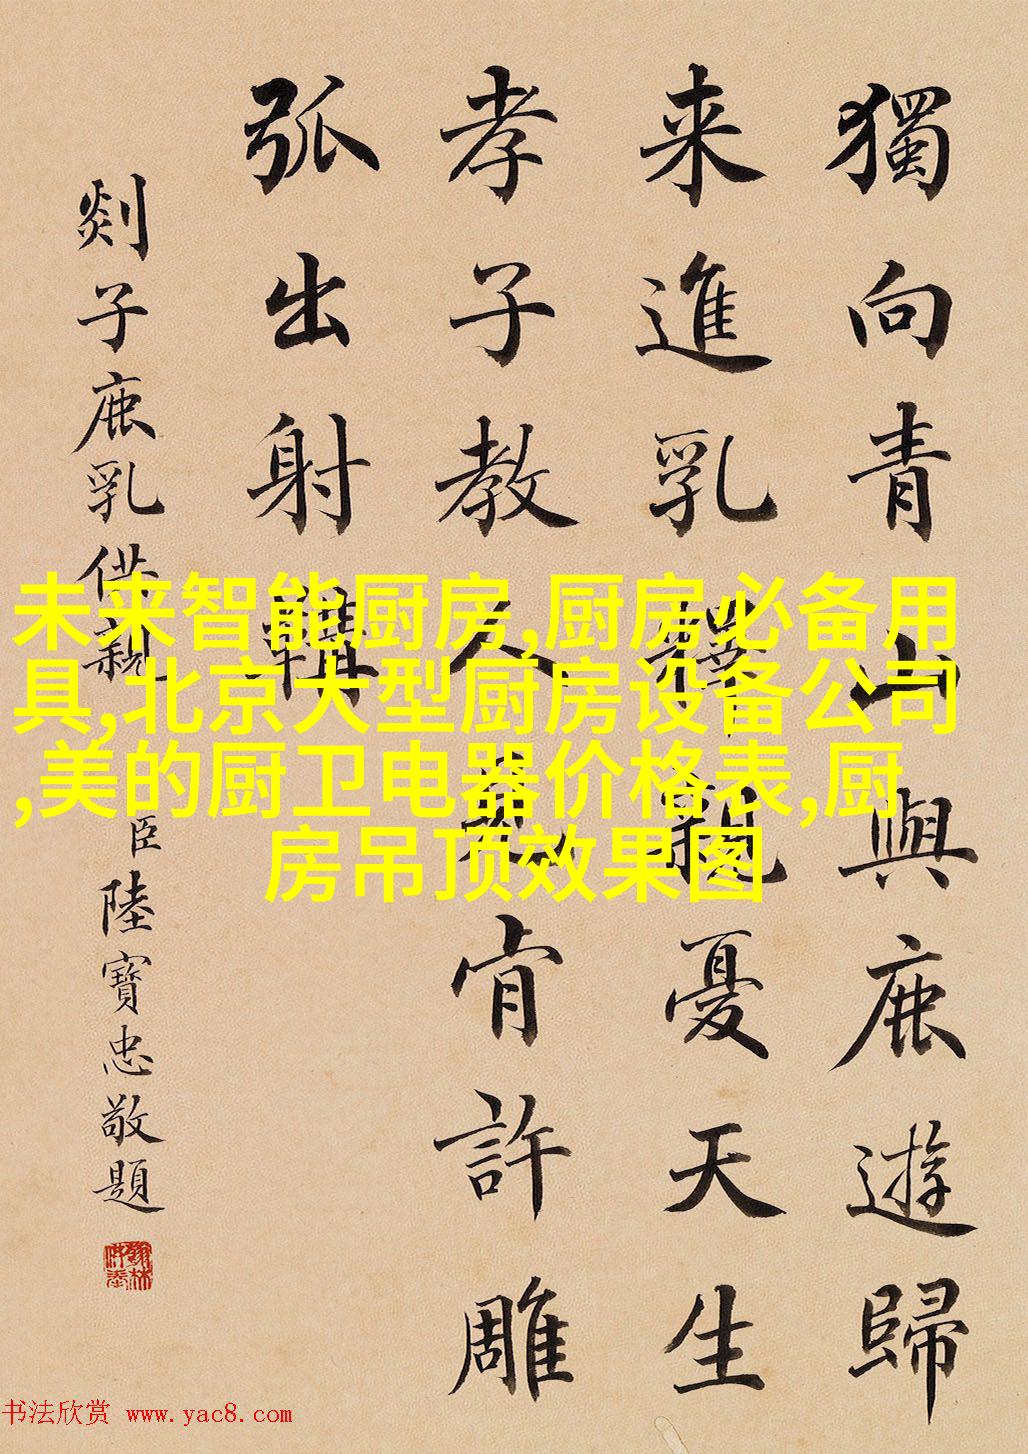 獨向青山與鹿遊歸
来進乳釋親憂天生
孝子教人見肯許雕
弧出射韝
剡子鹿乳供親
臣陸寶忠敬題
未来智能厨房,厨房必备用
具,北京大型厨房设备公司
,美的厨卫电器价格表,厨
房吊顶效果图
书法欣赏 www.yac8.com